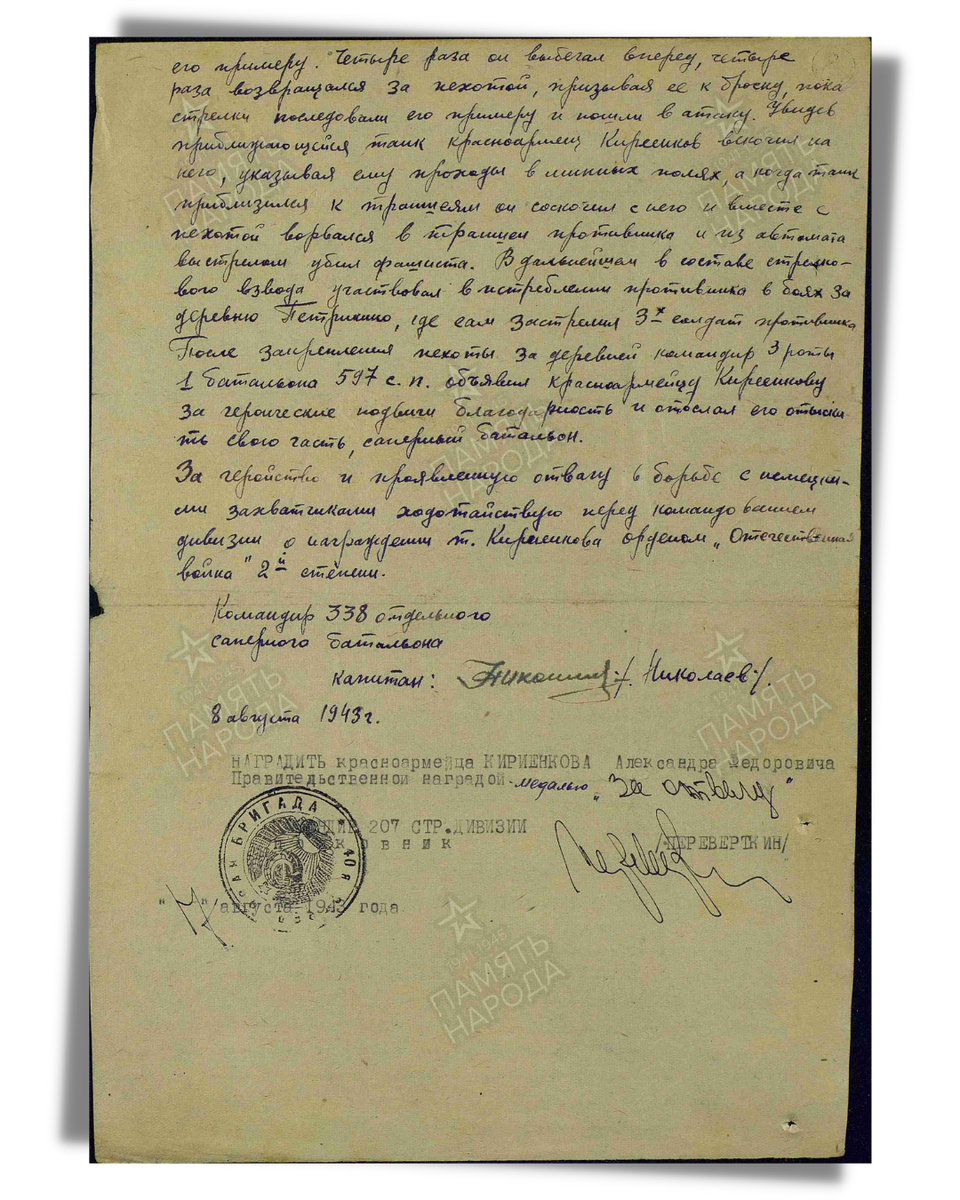 его примеру. Четыре раза он выбегал вперед, четыре
раза возвращался за пехотой, призывая ее к броску, пока
стрелки последовали его примеру и пошли в атаку. Увидев
приближающейся танк красноармеец Кириенков вскочил на
него, указывая ему проходы в минных полях, а когда танк
приблизился к траншеям он соскочил с него и вместе с
пехотой ворвался в траншеи противника и из автомата
выстрелом убил фашиста. В дальнейшем в составе стрелко-
вого взвода участвовал в истреблении противника в боях за
деревню Петрикино, где сам застрелил 3х солдат противника
После закрепления пехоты за деревней командир 3 роты
1 батальона 597 с.п. объявил красноармейцу Кириенкову
за героические подвиги благодарность и отослал его отыска
ть свою часть, саперный батальон.
За геройство и проявленную отвагу в борьбе с немецки-
ми захватчиками ходотайствую перед командованием
дивизии о награждении т. Кириенкова орденом „Отечественная
война" 2й степени.
Командир 338 отдельного
саперного батальона
капитан: /. Николаев./.
8 августа 1943 г.
НАГРАДИТЬ красноармейца КИРИЕНКОВА Александра Федоровича
Правительственной наградой - медалью „За отвагу"
207 СТР.ДИВИЗИИ
/ПЕРЕВЕРТКИН/
августа 1943 года
БРИГАДА
40
ПАМЯТЬ НАРОДА
1941-1945